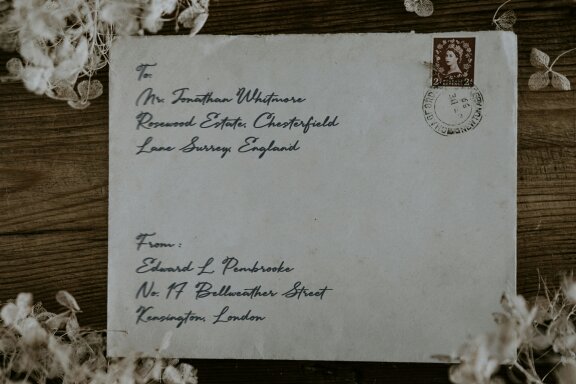 To,
Mr. Jonathan Whitmore
Rosewood Estate, Chesterfield
Lane Surrey, England
From :
Edward L Pembrooke
No. 17 Bellweather Street
Kensington, London